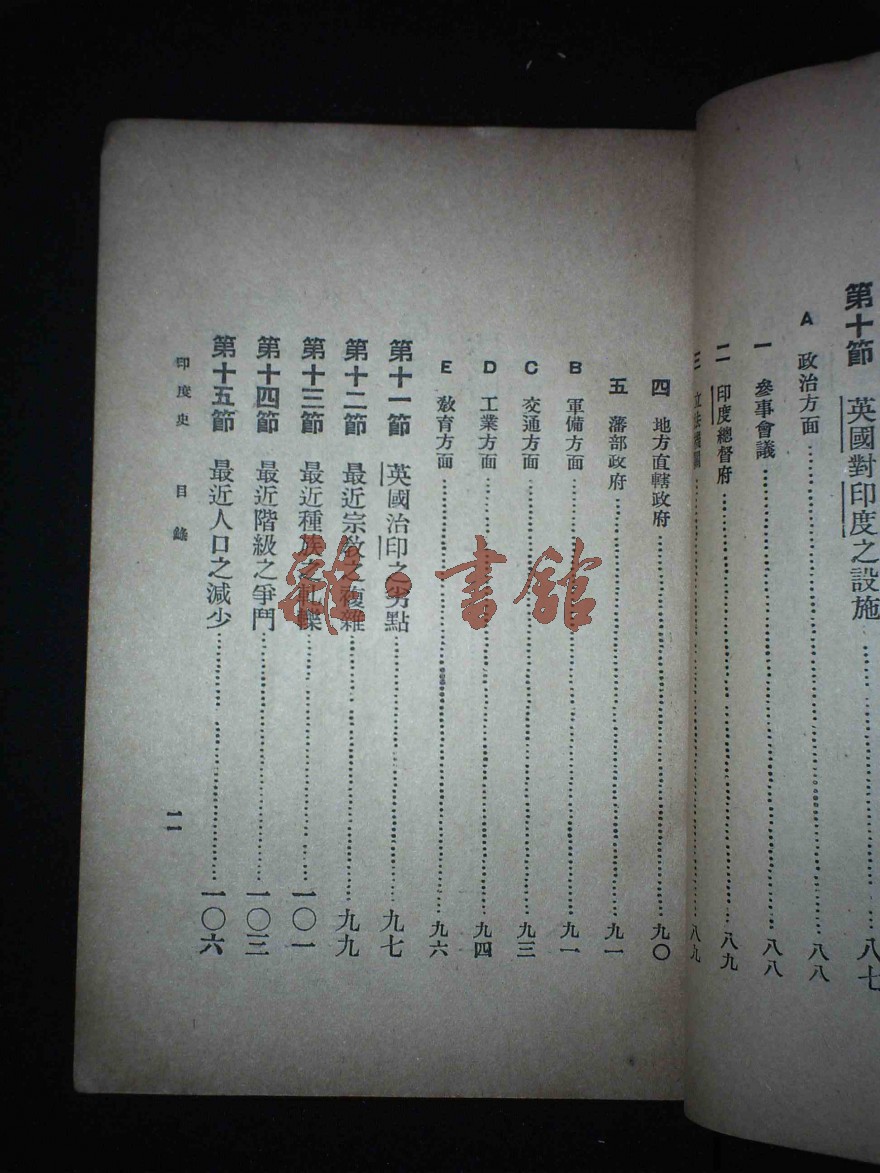 第十節 英國對印度之設施……八七
A 政治方面……八八
一 參事會議……八八
二 印度總督府……八九
三 立法機關……八九
四 地方直轄政府……九〇
五 藩部政府……九一
B 軍備方面……九一
C 交通方面……九三
D 工業方面……九四
E 敎育方面……九六
第十一節 英國治印之劣點……九七
第十二節 最近宗敎之複雜……九九
第十三節 最近種族之軋轢……一〇一
第十四節 最近階級之爭鬥……一〇三
第十五節 最近人口之減少……一〇六
印度史 目錄 二
雜·書館